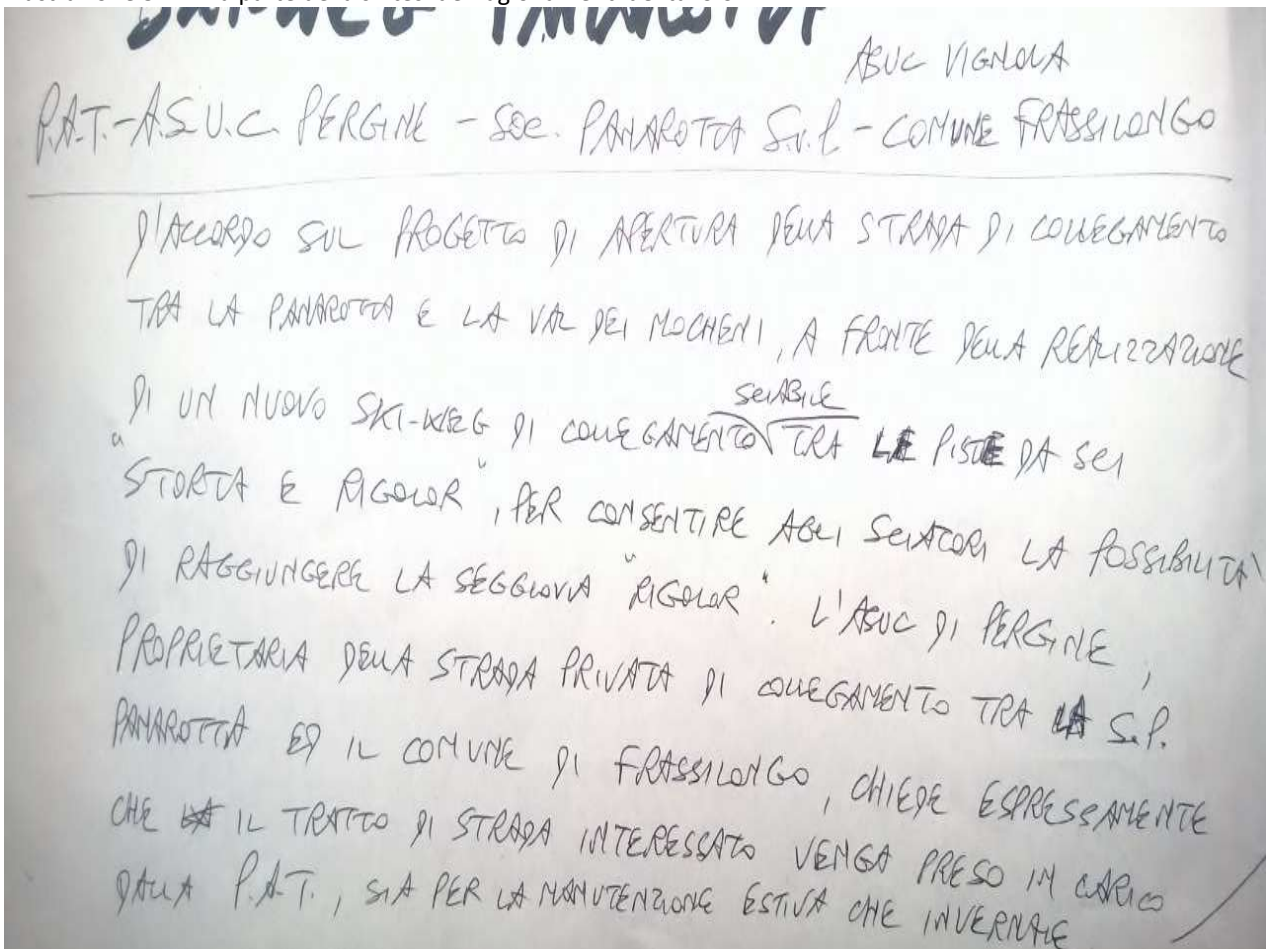 PANAROTTA
ASUC VIGNOLA
P.A.T.-A.S.U.C. PERGINE - SOC. PANAROTTA S.r.l - COMUNE FRASSILONGO
D'ACCORDO SUL PROGETTO DI APERTURA DELLA STRADA DI COLLEGAMENTO
TRA LA PANAROTTA E LA VAL DEI MOCHENI, A FRONTE DELLA REALIZZAZIONE
SCIABILE
DI UN NUOVO SKI-WEG DI COLLEGAMENTO TRA LE PISTE DA SCI
"STORTA E RIGOLOR", PER CONSENTIRE AGLI SCIATORI LA POSSIBILITA'
DI RAGGIUNGERE LA SEGGIOVIA "RIGOLOR". L'ASUC DI PERGINE,
PROPRIETARIA DELLA STRADA PRIVATA DI COLLEGAMENTO TRA LA S.P.
PANAROTTA ED IL COMUNE DI FRASSILONGO, CHIEDE ESPRESSAMENTE
CHE IL TRATTO DI STRADA INTERESSATO VENGA PRESO IN CARICO
DALLA P.A.T., SIA PER LA MANUTENZIONE ESTIVA CHE INVERNALE